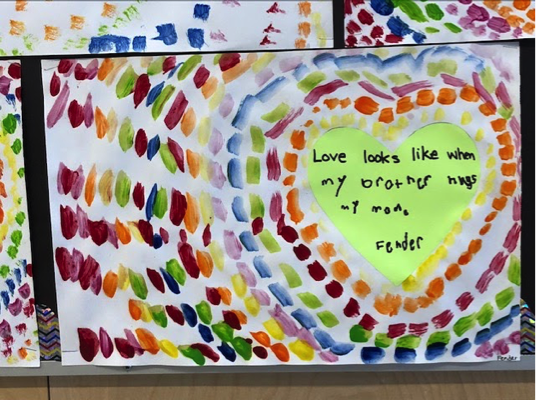 Love looks like when
my brother hugs
my mom.
Fender
Fender